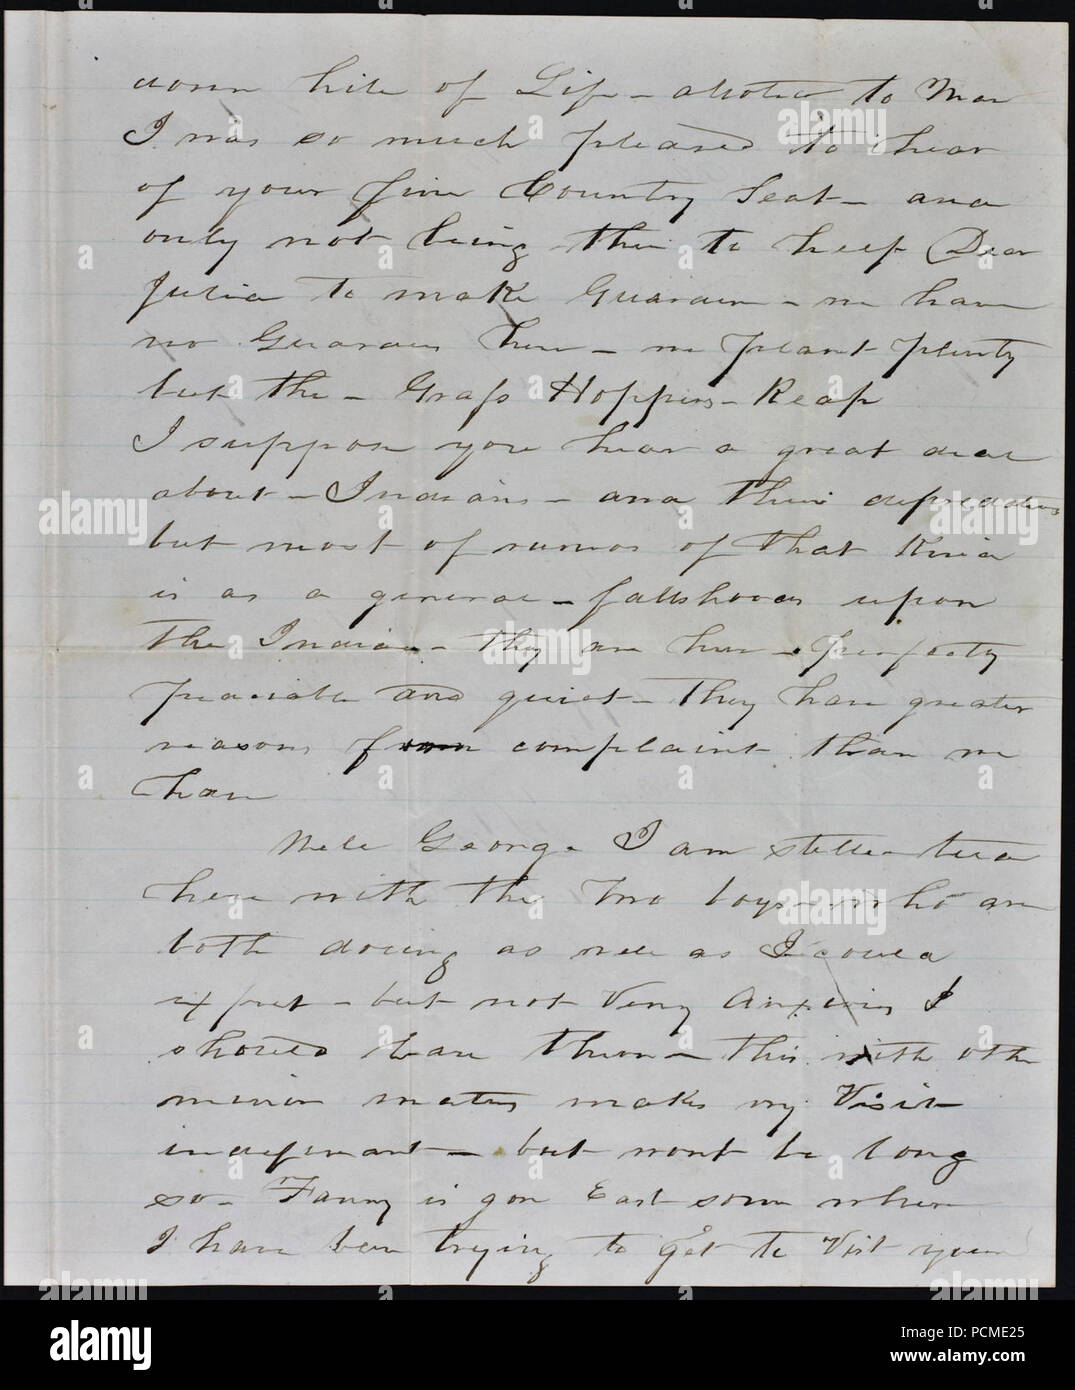 down hile of Life – alloted to Man
I was so much pleased to hear
of your fine Country Seat – and
only not being thir to keep Dear
Julia to make Guardin – we have
no Guardins hire – we plant plenty
but the – Grass Hoppers – Reap
I suppose you hear a great deal
about – Indians – and their depredations
but most of rumors of that Kind
is as a general – falsehoods upon
the Indian – they are here – perfectly
peaciable and quiet – They have greater
reasons for complaint than we
have
Well George I am still tied
here with the two boys – who are
both doing as well as I could
expect – but not very Anxious I
should leave them – this with other
minor matters makes my Visit
indefinant – but wont be long
so – Fanny is gon East som where
I have been trying to get to Visit your
alamy stock photo
PCME25
www.alamy.com